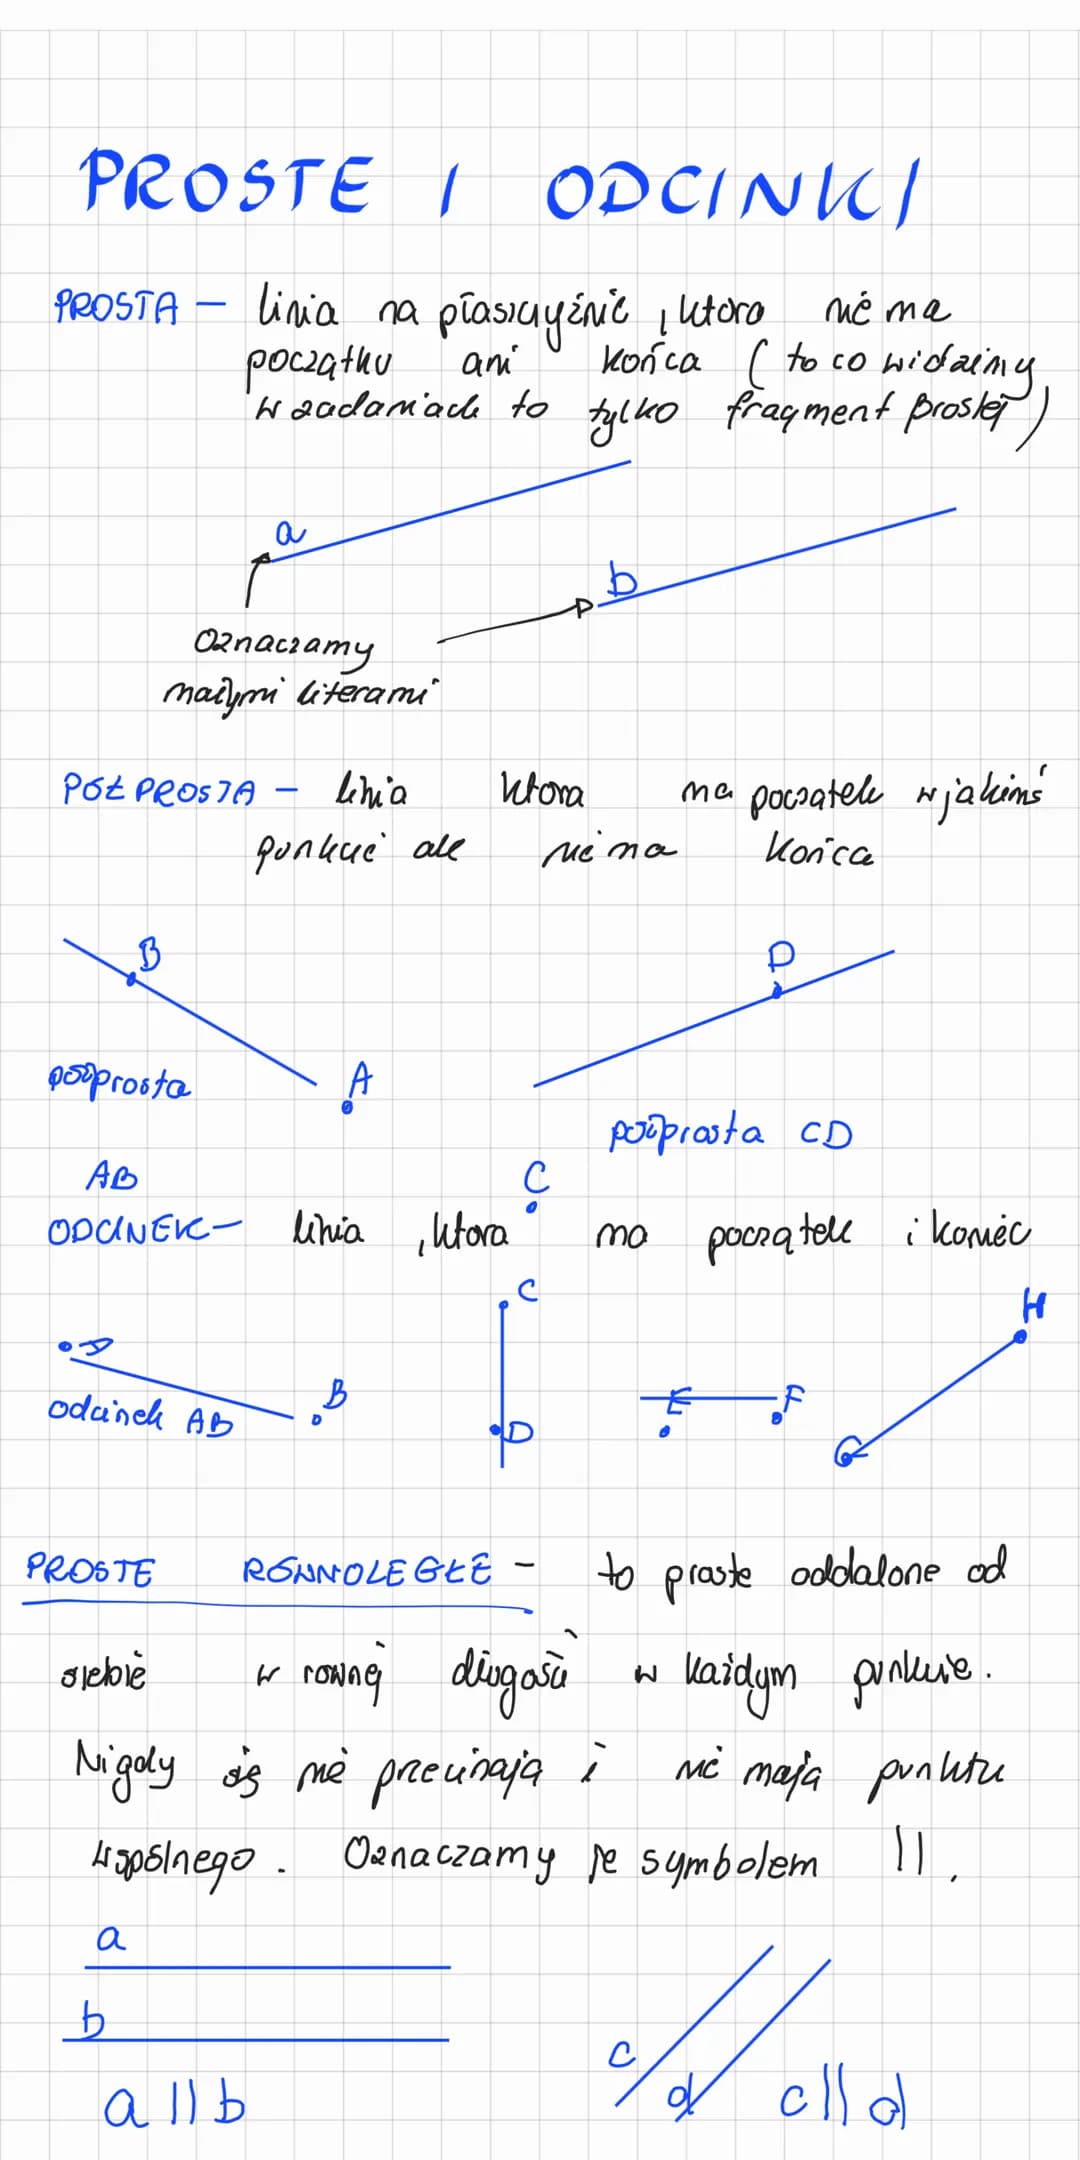 PROSTE I ODCINKI
PROSTA – linia na płaszczyźnie, ktora nie ma
początku ani końca (to co widzimy
w zadaniach to tylko fragment prostej)
a
b
Oznaczamy
małymi literami
PÓŁPROSTA – linia ktora ma poczatek w jakimś
punkcie ale nie ma końca
B
D
A
półprosta
półprosta CD
AB
C
ODCINEK – linia, ktora ma początek i koniec
C
H
A
B
E
F
odcinek AB
D
G
PROSTE RÓWNOLEGŁE – to proste oddalone od
siebie w rownej długości w każdym punkcie.
Nigdy się nie przecinają i nie mają punktu
wspólnego. Oznaczamy je symbolem ||.
a
b
c
d
a || b
c || d